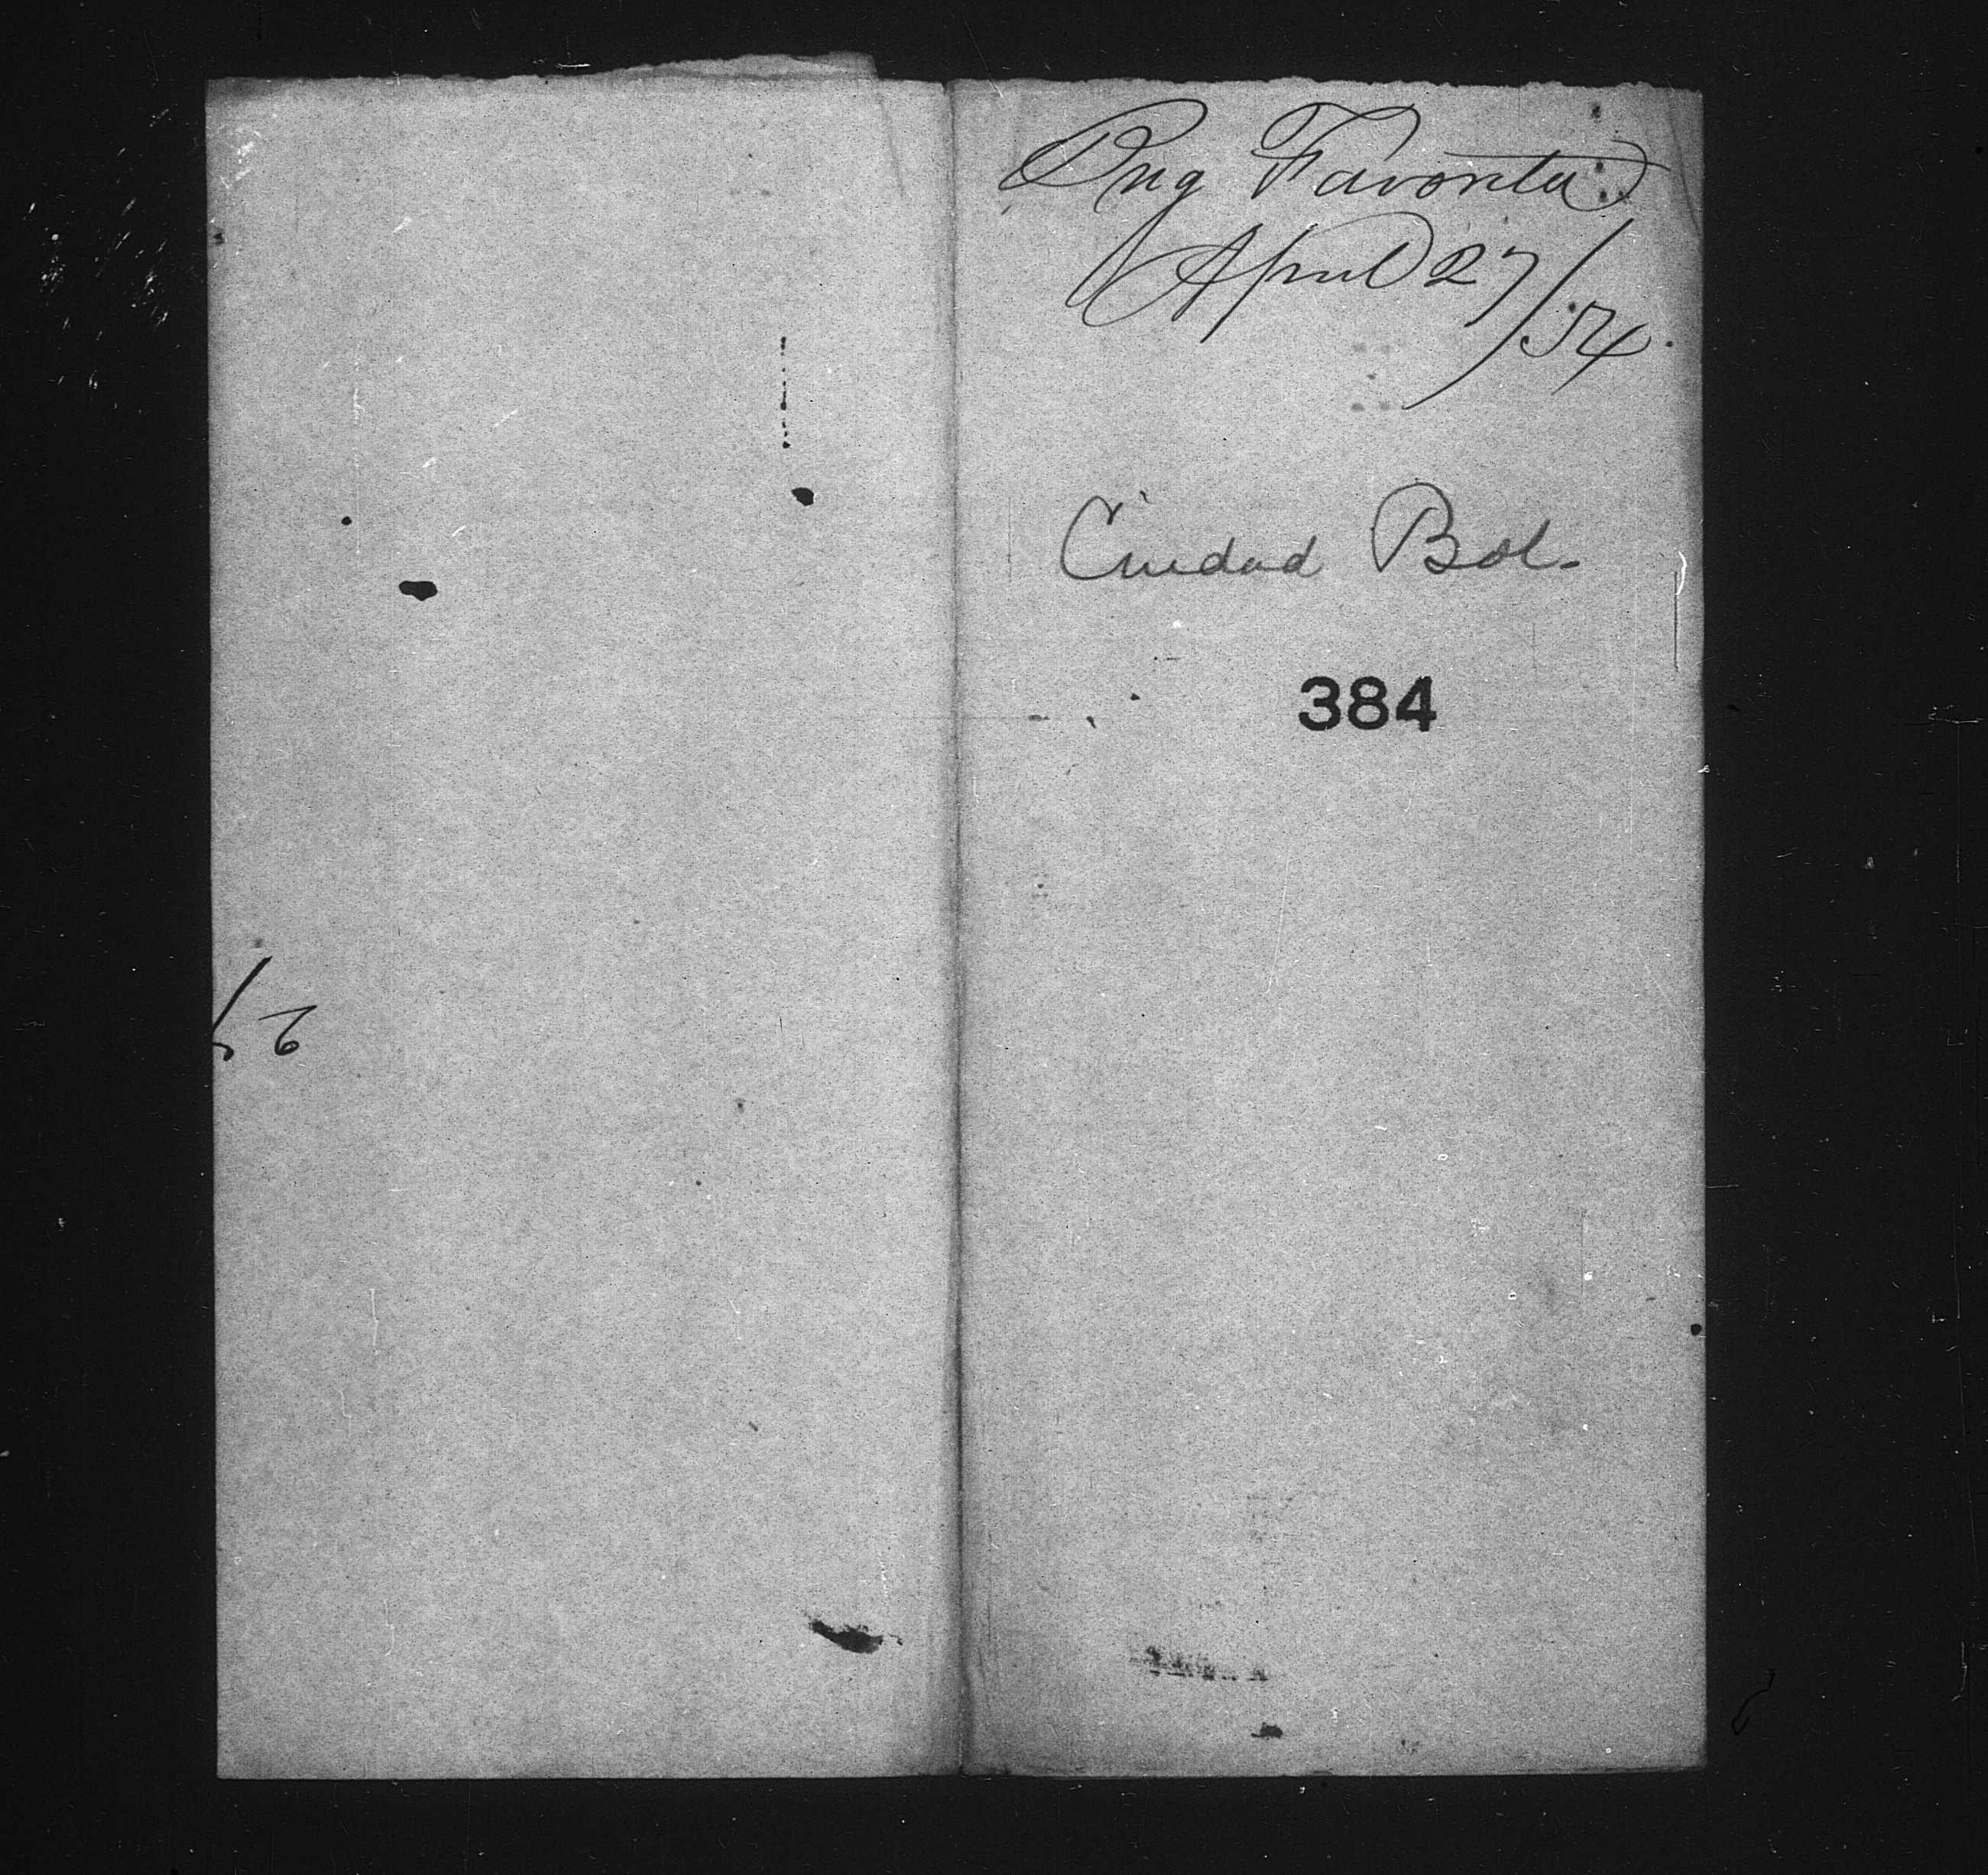 Brig Favorita
April 27/54.
Ciudad Bol.
384